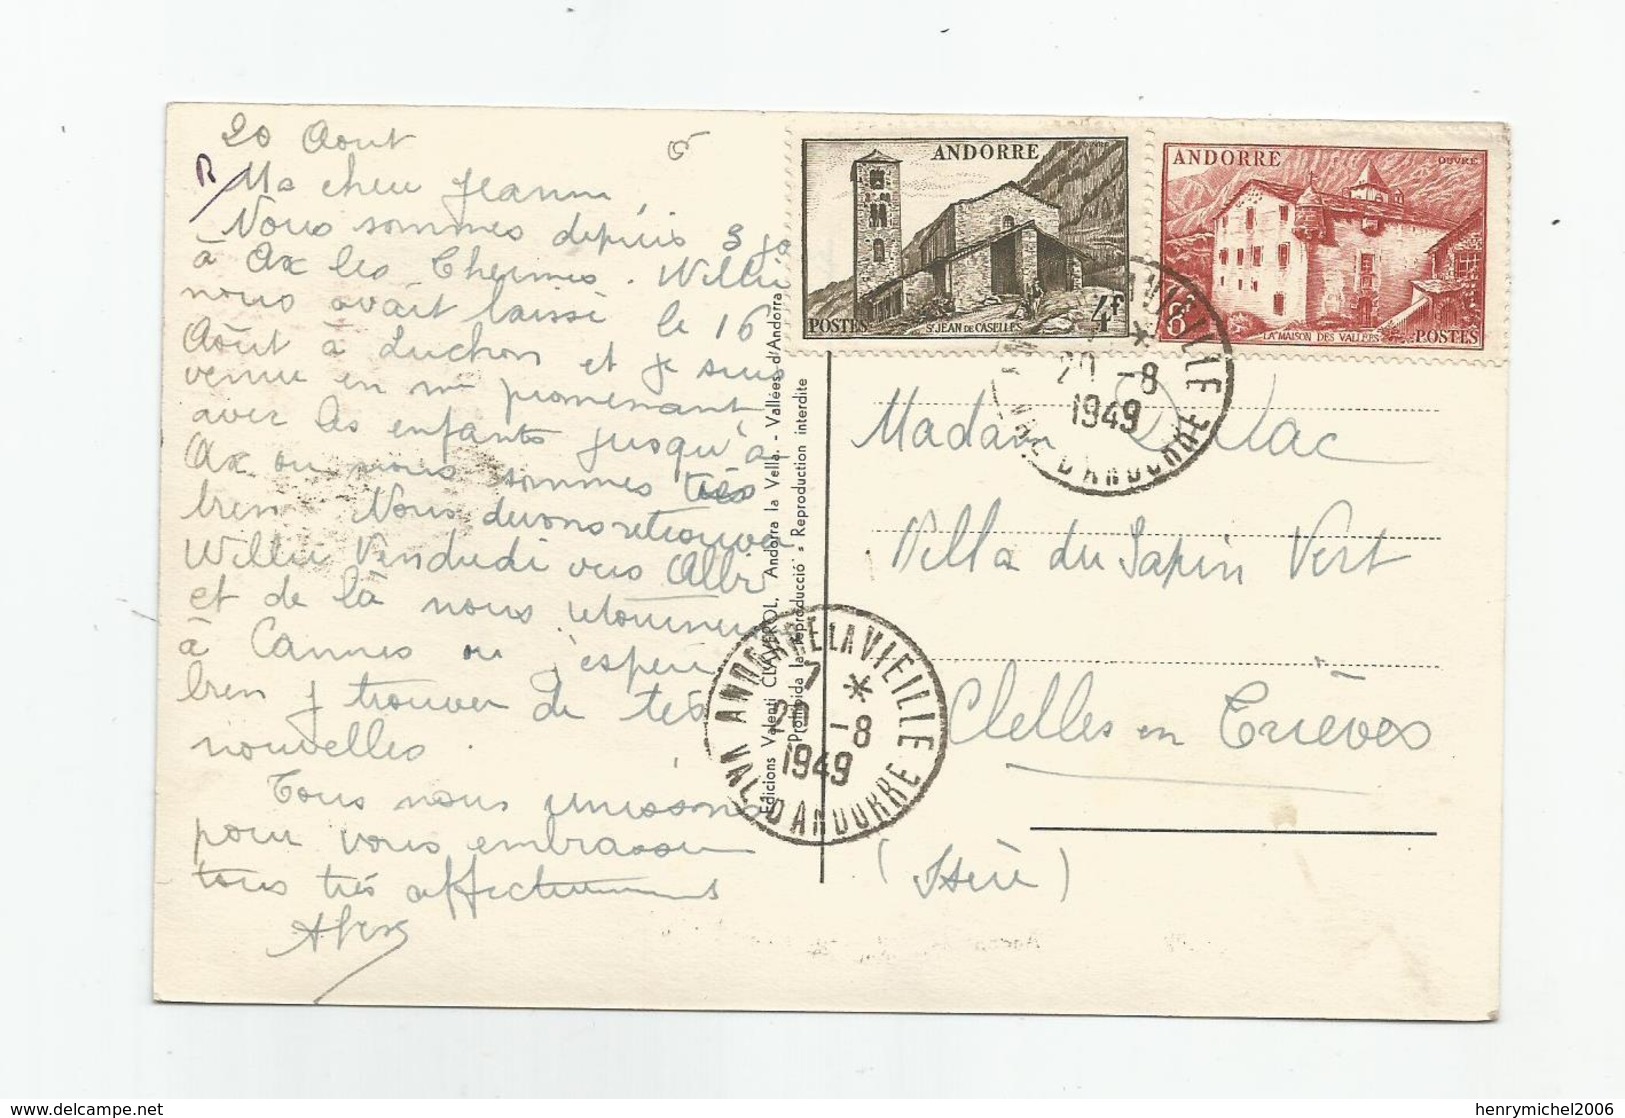 20 Aout
Ma chere Jeanne,
Nous sommes depuis 3 jo
à Ax les Thermes. Willie
nous avait laissé le 16
Août à Luchon et je suis
venue en me promenant
avec les enfants jusqu'à
Ax ou nous sommes très
bien. Nous devons retrouver
Willie Vendredi vers Albi
et de là nous retournerons
à Cannes ou j'espère
bien y trouver de tes
nouvelles.
Tous nous unissons
pour vous embrasser
tous très affectueusement
ANDORRE
POSTES
ST JEAN DE CASELLES
4F
ANDORRE
OUVRÉ
8F
LA MAISON DES VALLÉES
POSTES
ANDORRE LA VIEILLE
20 -8
1949
VAL D'ANDORRE
Edicions Valenti CLAVEROL, Andorra la Vella. - Vallées d'Andorra
Prohibida la reproducció - Reproduction interdite
ANDORRE LA VIEILLE
7 *
20 -8
1949
VAL D'ANDORRE
Madame
Villa du Sapin Vert
Clelles en Trièves
(Isère)
henrymichel2006